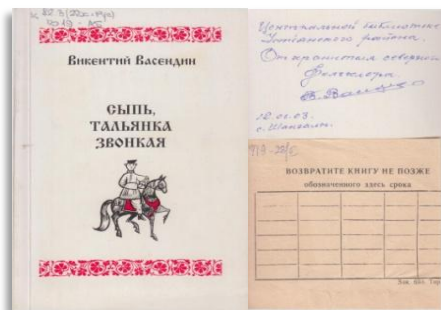 Викентий Васендин
СЫПЬ,
ТАЛЬЯНКА
ЗВОНКАЯ
Центральной библиотеке
Устьянского района.
От
северного
фольклора
12.01.03.
с. Шангалы.
ВОЗВРАТИТЕ КНИГУ НЕ ПОЗЖЕ
обозначенного здесь срока